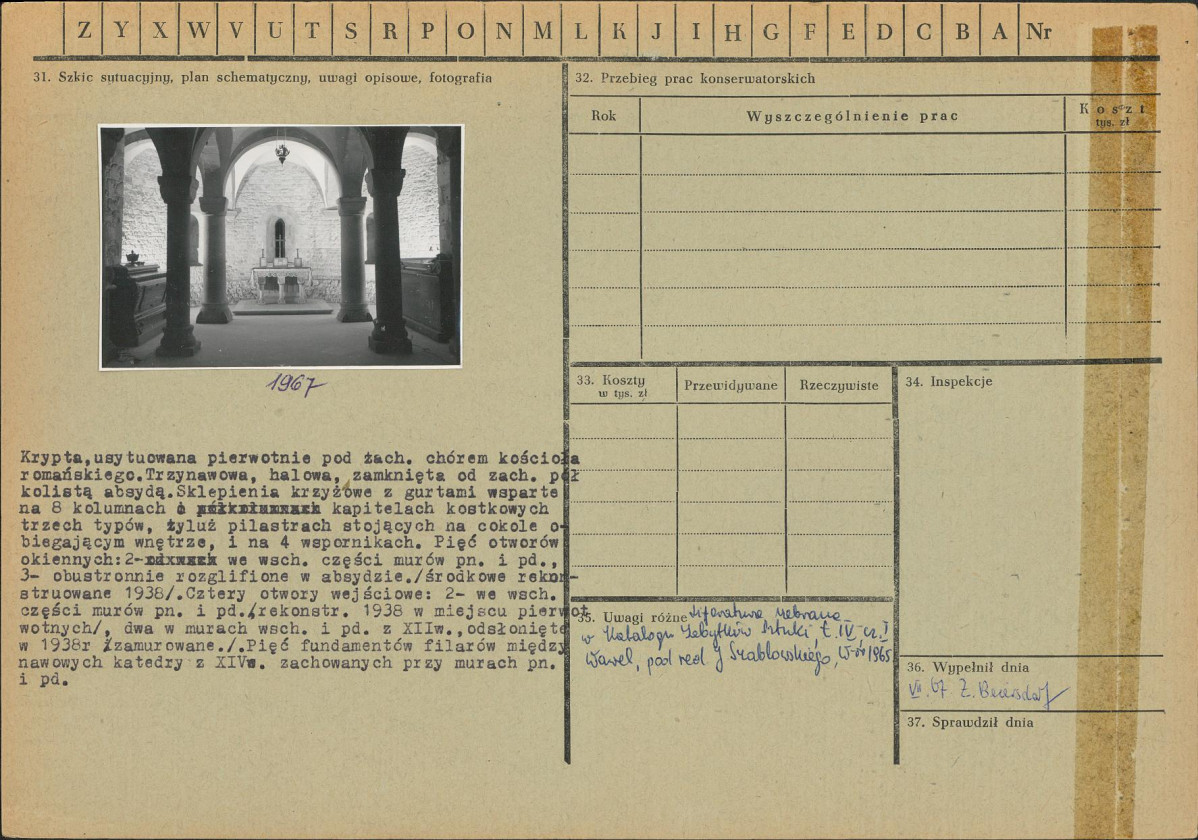 Z Y X W V U T S R P O N M L K J I H G F E D C B A Nr
31. Szkic sytuacyjny, plan schematyczny, uwagi opisowe, fotografia
1967
Krypta,usytuowana pierwotnie pod zach. chórem kościoła
romańskiego.Trzynawowa, halowa, zamknięta od zach. pół
kolistą absydą.Sklepienia krzyżowe z gurtami wsparte
na 8 kolumnach o kapitelach kostkowych
trzech typów, tyluż pilastrach stojących na cokole o-
biegającym wnętrze, i na 4 wspornikach. Pięć otworów
okiennych:2- we wsch. części murów pn. i pd.,
3- obustronnie rozglifione w absydzie./środkowe rekon-
struowane 1938/.Cztery otwory wejściowe: 2- we wsch.
części murów pn. i pd./rekonstr. 1938 w miejscu pierwot
wotnych/, dwa w murach wsch. i pd. z XIIw.,odsłonięte
w 1938r /zamurowane./.Pięć fundamentów filarów między
nawowych katedry z XIVw. zachowanych przy murach pn.
i pd.
32. Przebieg prac konserwatorskich
Rok Wyszczególnienie prac Koszt
tys. zł
33. Koszty
w tys. zł Przewidywane Rzeczywiste
34. Inspekcje
35. Uwagi różne Literatura zebrana
w Katalogu Zabytków Sztuki, t. IV cz. I
Wawel, pod red. J Szablowskiego, W-wa 1965
36. Wypełnił dnia
VII. 67. Z. Beiersdorf
37. Sprawdził dnia